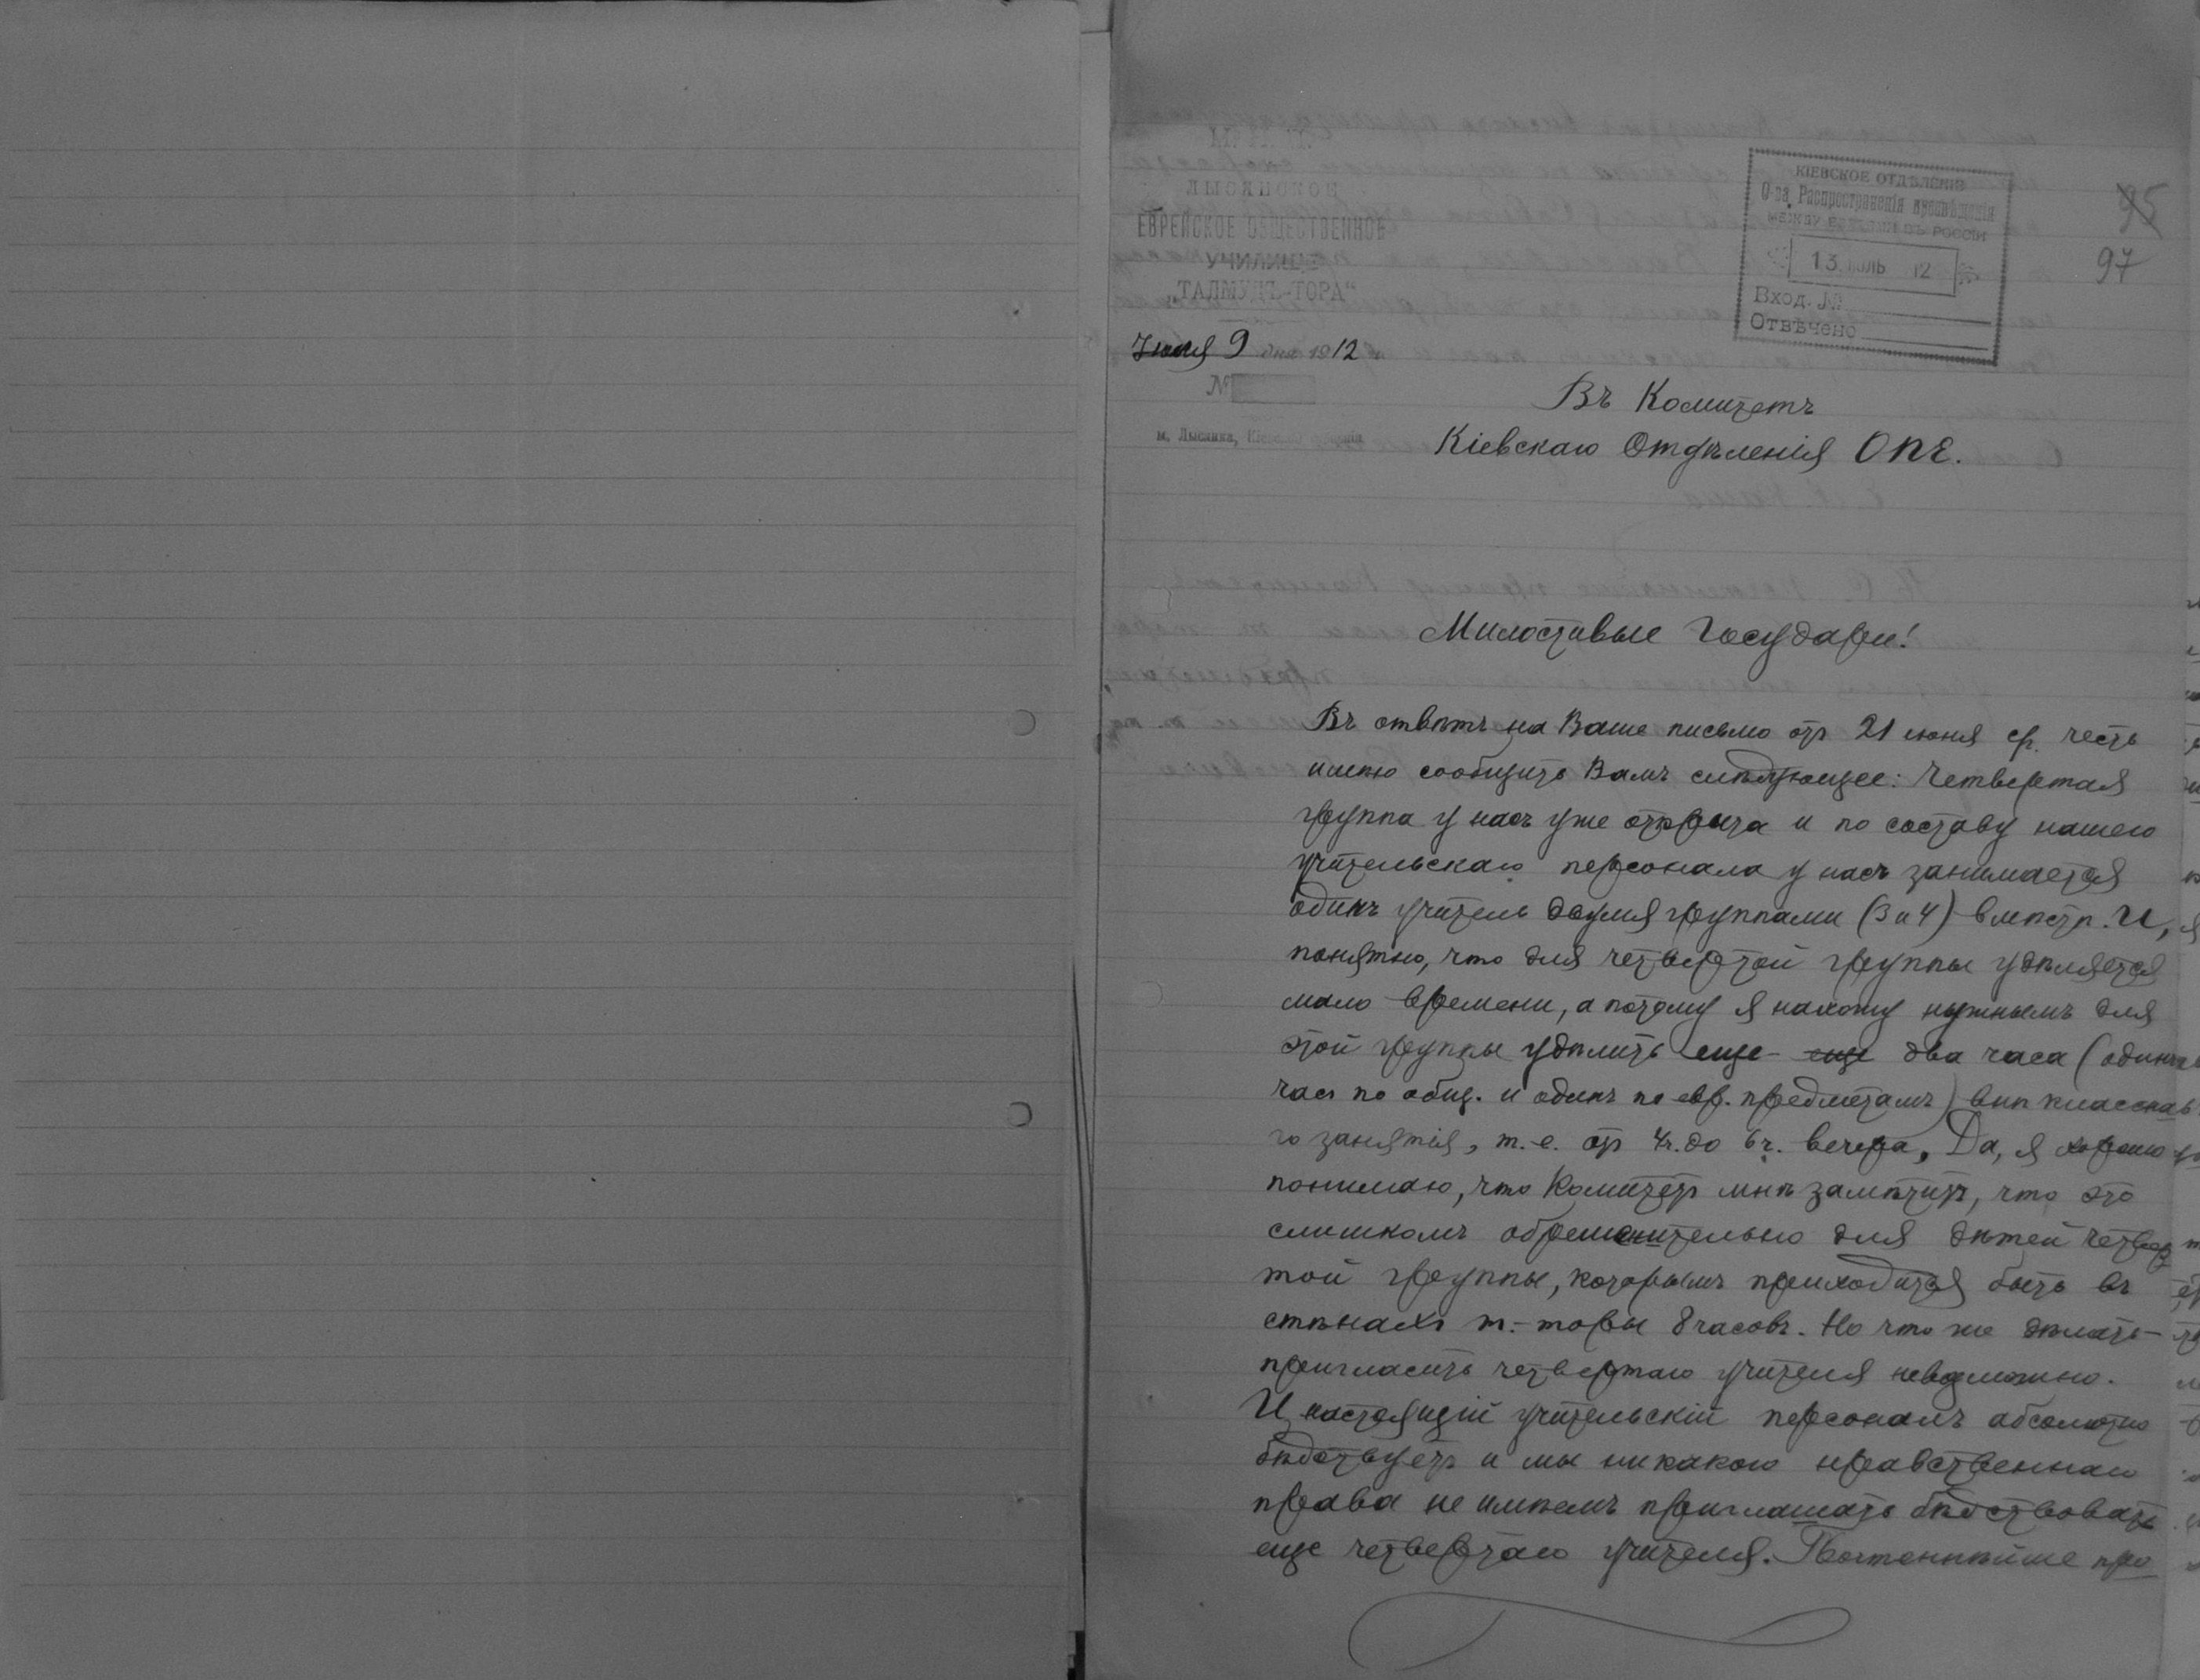 М. Н. П.
ЛЫСЯНСКОЕ
ЕВРЕЙСКОЕ ОБЩЕСТВЕННОЕ
УЧИЛИЩЕ
„ТАЛМУДЪ-ТОРА“
Июля 9 дня 1912 г.
№
м. Лысянка, Кіевской губерніи
КІЕВСКОЕ ОТДѢЛЕНІЕ
О-ва Распространенія просвѣщенія
МЕЖДУ ЕВРЕЯМИ ВЪ РОССІИ
13 ІЮЛЬ 12
Вход. №
Отвѣчено
95
97
Въ Комитетъ
Кіевскаго Отдѣленія ОПЕ.
Милостивые Государи!
Въ отвѣтъ на Ваше письмо отъ 21 июня с/г. честь
имѣю сообщить Вамъ слѣдующее: Четвертая
группа у насъ уже открыта и по составу нашего
учительскаго персонала у насъ занимается
одинъ учитель двумя группами (3 и 4) вмѣстѣ. И,
понятно, что для четвертой группы удѣляется
мало времени, а потому я нахожу нужнымъ для
этой группы удѣлить еще еще два часа (одинъ
час по общ. и одинъ по евр. предметамъ) внѣ класснаго
го занятія, т.-е. отъ 4ч. до 6ч. вечера, Да, я хорошо
понимаю, что Комитетъ мнѣ замѣтитъ, что это
слишкомъ обременительно для дѣтей четвер
той группы, которымъ приходится быть въ
стѣнахъ т.-торы 8 часовъ. Но что же дѣлать-
пригласить четвертаго учителя невозможно.
И настоящій учительскій персоналъ абсолютно
бѣдствуетъ и мы никакого нравственнаго
права не имѣемъ приглашать бѣдствовать
еще четвертаго учителя. Почтеннѣйше про